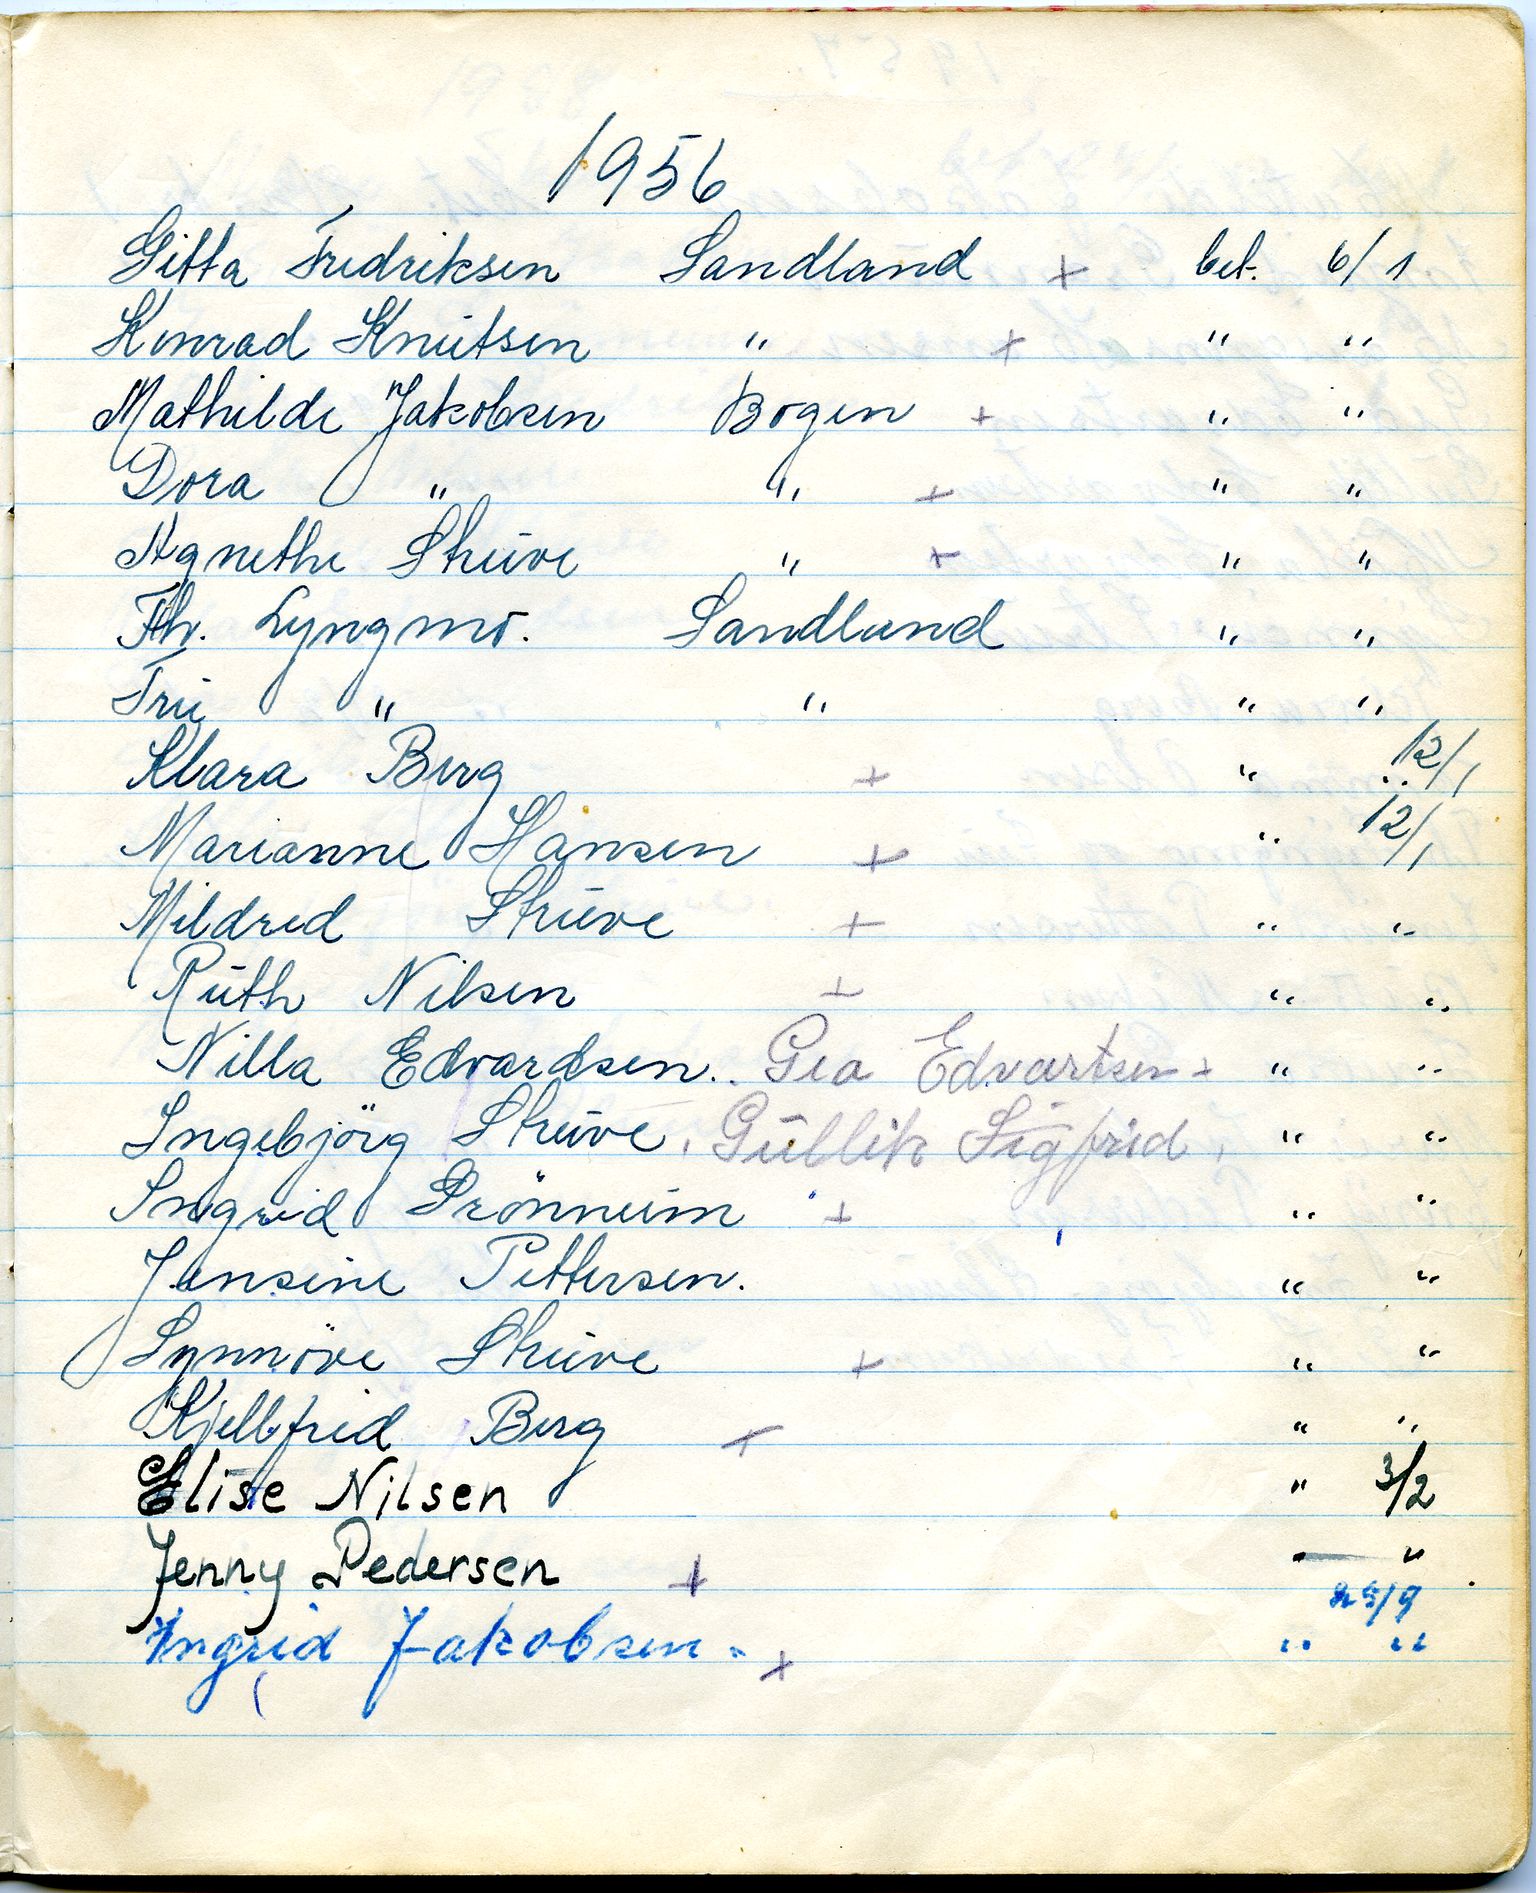 1956
Gitta Fredriksen Sandland + bet. 6/1
Konrad Knutsen " + " "
Mathilde Jakobsen Bogen + " "
Dora " " + " "
Agnethe Strüve " + " "
Th. Lyngmo. Sandland " "
Fru " " " "
Klara Berg + " 12/1
Marianne Hansen + " 12/1
Mildred Strüve + " "
Ruth Nilsen + " "
Nilla Edvardsen.. Gea Edvartsen + " "
Ingebjörg Strüve, Gullik Sigfrid, " "
Ingrid Prönneim + " "
Jensine Pettersen. " "
Synnöve Strüve + " "
Kjellfrid Berg + " "
Elise Nilsen " 3/2
Jenny Pedersen + - "
/9
Ingrid Jakobsen + " "